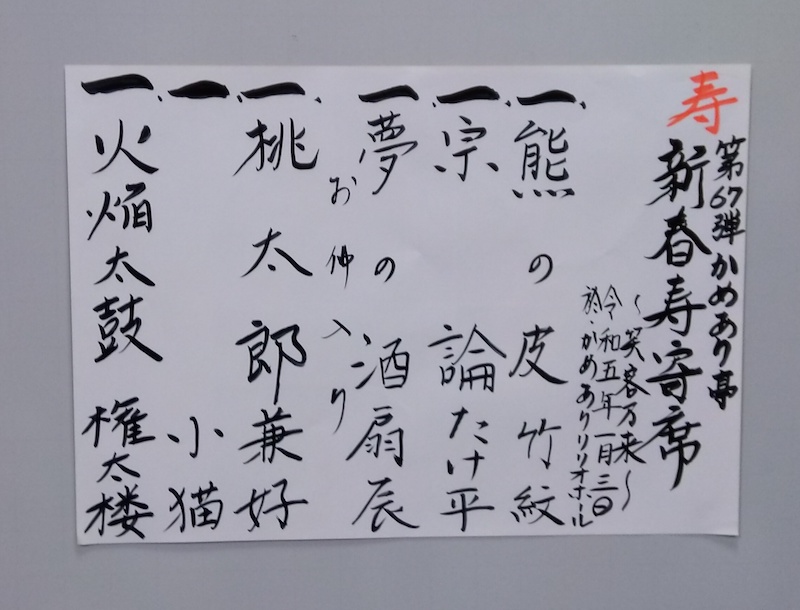 寿
第67弾かめあり亭
新春寿寄席
～笑客万来～
令和五年一月三日
於・かめありリリオホール
一、熊の皮 竹紋
一、宗論 たけ平
一、夢の酒 扇辰
お仲入り
一、桃太郎 兼好
一、 小猫
一、火焔太鼓 権太楼